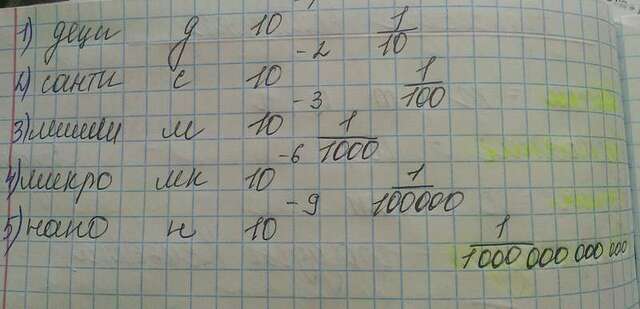 1) деци д 10⁻¹ 1/10
2) санти с 10⁻² 1/100
3) милли м 10⁻³ 1/1000
4) микро мк 10⁻⁶ 1/100000
5) нано н 10⁻⁹ 1/1000 000 000 000